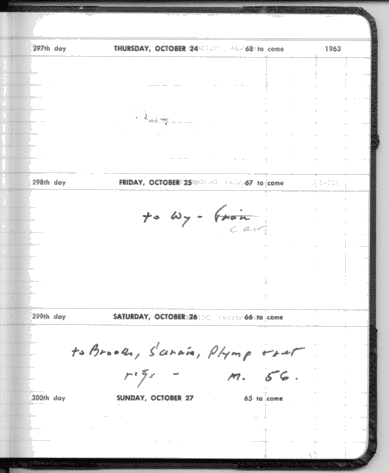 297th day THURSDAY, OCTOBER 24 68 to come 1963
298th day FRIDAY, OCTOBER 25 67 to come
to Wy - Train
Car
299th day SATURDAY, OCTOBER 26 66 to come
to Brooks, Sarnia, Plymp
M. 56.
300th day SUNDAY, OCTOBER 27 65 to come